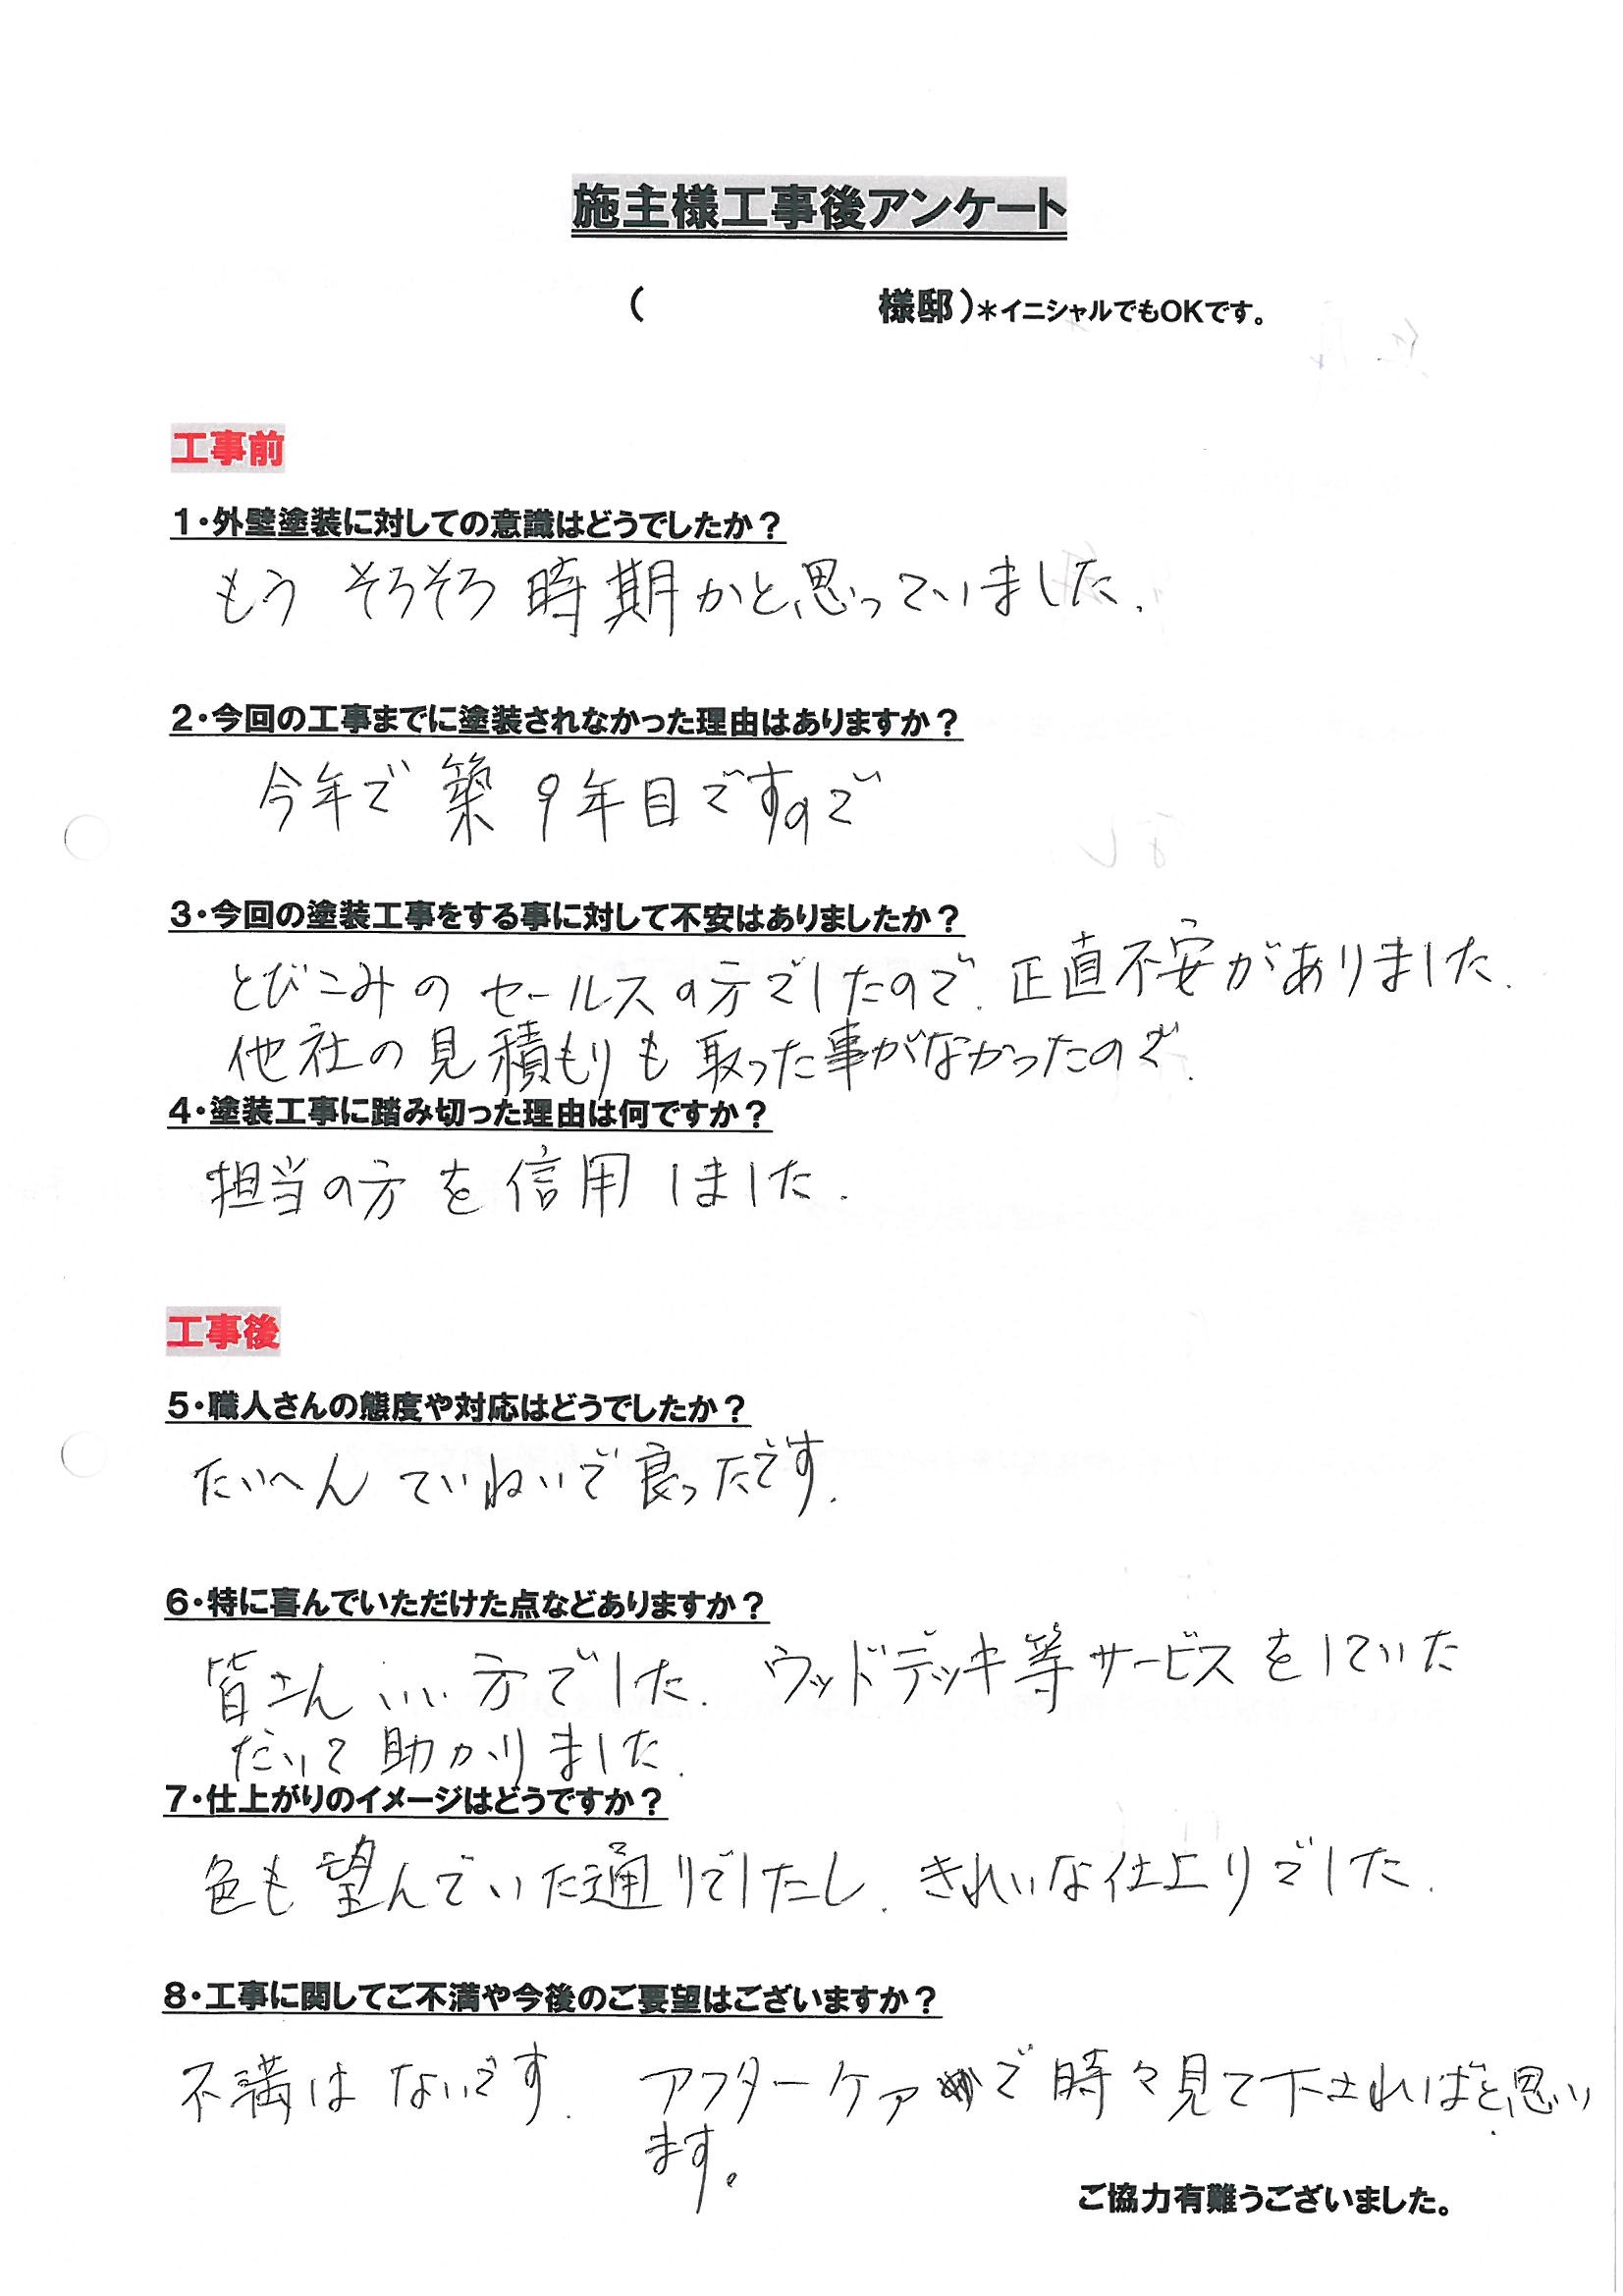 施主様工事後アンケート
(　　　　　　　様邸)*イニシャルでもOKです。
工事前
1・外壁塗装に対しての意識はどうでしたか？
もう そろそろ 時期かと思っていました.
2・今回の工事までに塗装されなかった理由はありますか？
今年で 築 9年目ですので
3・今回の塗装工事をする事に対して不安はありましたか？
とびこみの セールスの方でしたので、正直不安がありました.
他社の見積もりも取った事がなかったので.
4・塗装工事に踏み切った理由は何ですか？
担当の方を信用しました.
工事後
5・職人さんの態度や対応はどうでしたか？
たいへん ていねいで良ったです.
6・特に喜んでいただけた点などありますか？
皆さん いい方でした. ウッドデッキ等サービスをしていた
だいて助かりました.
7・仕上がりのイメージはどうですか？
色も望んでいた通りでしたし、きれいな仕上りでした.
8・工事に関してご不満や今後のご要望はございますか？
不満は ないです. アフターケアで時々見て下さればと思い
ます。
ご協力有難うございました。